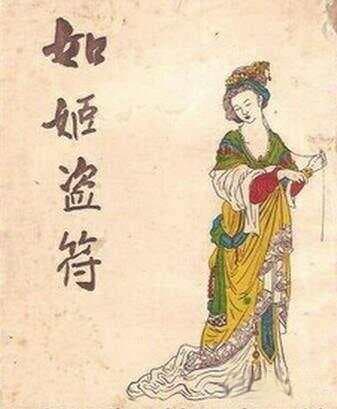 如姬盗符